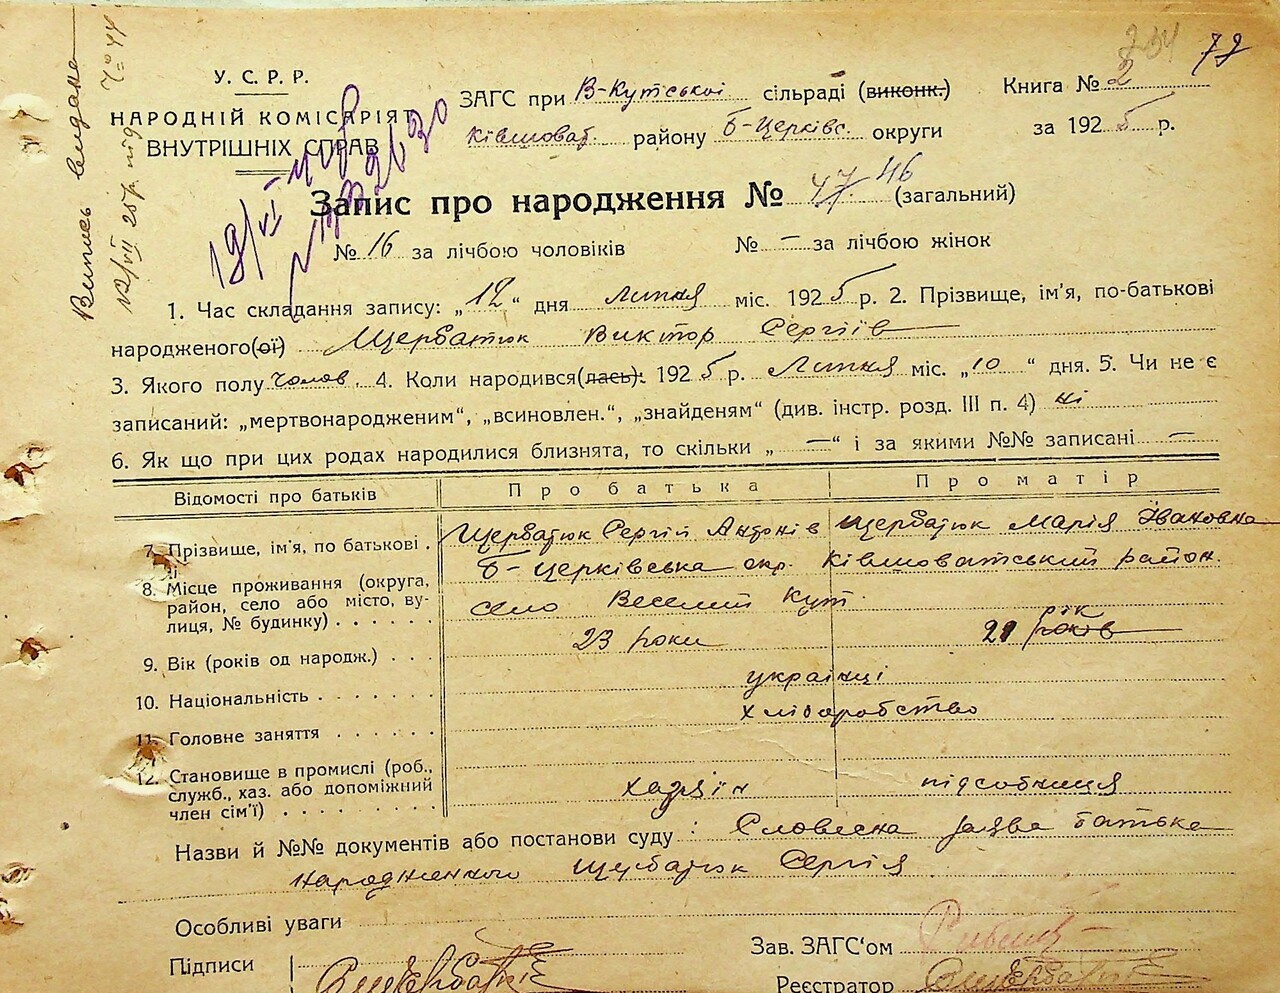 234 72
Випись видана
12/VII 25р. під
Ч= 44
У. С. Р. Р.
НАРОДНІЙ КОМІСАРІЯТ
ВНУТРІШНІХ СПРАВ
ЗАГС при В-Кутської сільраді (виконк.)
Книга № 2
Ківшоват. району Б-Церківс. округи
за 1925 р.
Запис про народження № 47. 46 (загальний)
19/VI
№ 16 за лічбою чоловіків № — за лічбою жінок
1. Час складання запису: „12“ дня Липня міс. 1925 р. 2. Прізвище, ім’я, по-батькові
народженого(ої) Щербатюк Виктор Сергіїв
3. Якого полу чолов. 4. Коли народився(лась): 1925 р. Липня міс. „10“ дня. 5. Чи не є
записаний: „мертвонародженим“, „всиновлен.“, „знайденям“ (див. інстр. розд. III п. 4) ні
6. Як що при цих родах народилися близнята, то скільки „—“ і за якими №№ записані —
Відомості про батьків Про батька Про матір
7. Прізвище, ім’я, по батькові . Щербатюк Сергій Антонів Щербатюк Марія Івановна
8. Місце проживання (округа, район, село або місто, вулиця, № будинку) . . . . . . Б-Церківська окр. Ківшоватський район.
село Веселий Кут.
9. Вік (років од народж.) . . . 23 роки 21 років рік
10. Національність . . . . . . . українці
11. Головне заняття . . . . . . хліборобство
12. Становище в промислі (роб., служб., хаз. або допоміжний член сім’ї) . . . . . . . . хазяїн підсобниця
Назви й №№ документів або постанови суду : Словесна заява батька
народженого Щербатюк Сергія
Особливі уваги
Підписи
Зав. ЗАГС‘ом
Реєстратор